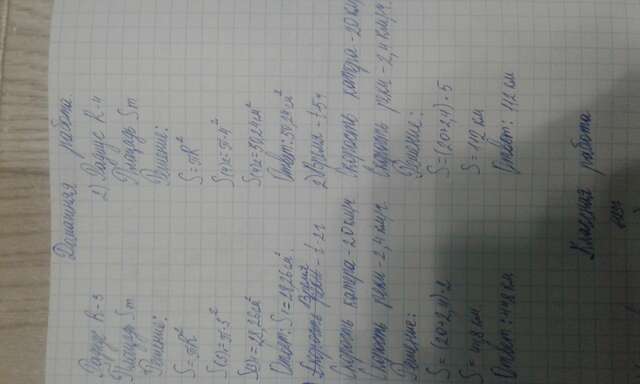 Домашняя работа.
Радиус R=3
Площадь Sm
Решение:
S=πR²
S(3)=π·3²
S(3)=28,26 см²
Ответ: S1=28,26 см².
Время - 1:2ч
Скорость катера - 20 км/ч
Скорость реки - 2,4 км/ч
Решение:
S=(20+2,4)·2
S=44,8 км
Ответ: 44,8 км
2) Радиус R=4
Площадь Sm
Решение:
S=πR²
S(4)=π·4²
S(4)=50,24 см²
Ответ: 50,24 см²
2) Время - 1:5ч
Скорость катера - 20 км
Скорость реки - 2,4 км/ч.
Решение:
S=(20+2,4)·5
S=112 км
Ответ: 112 км
Классная работа